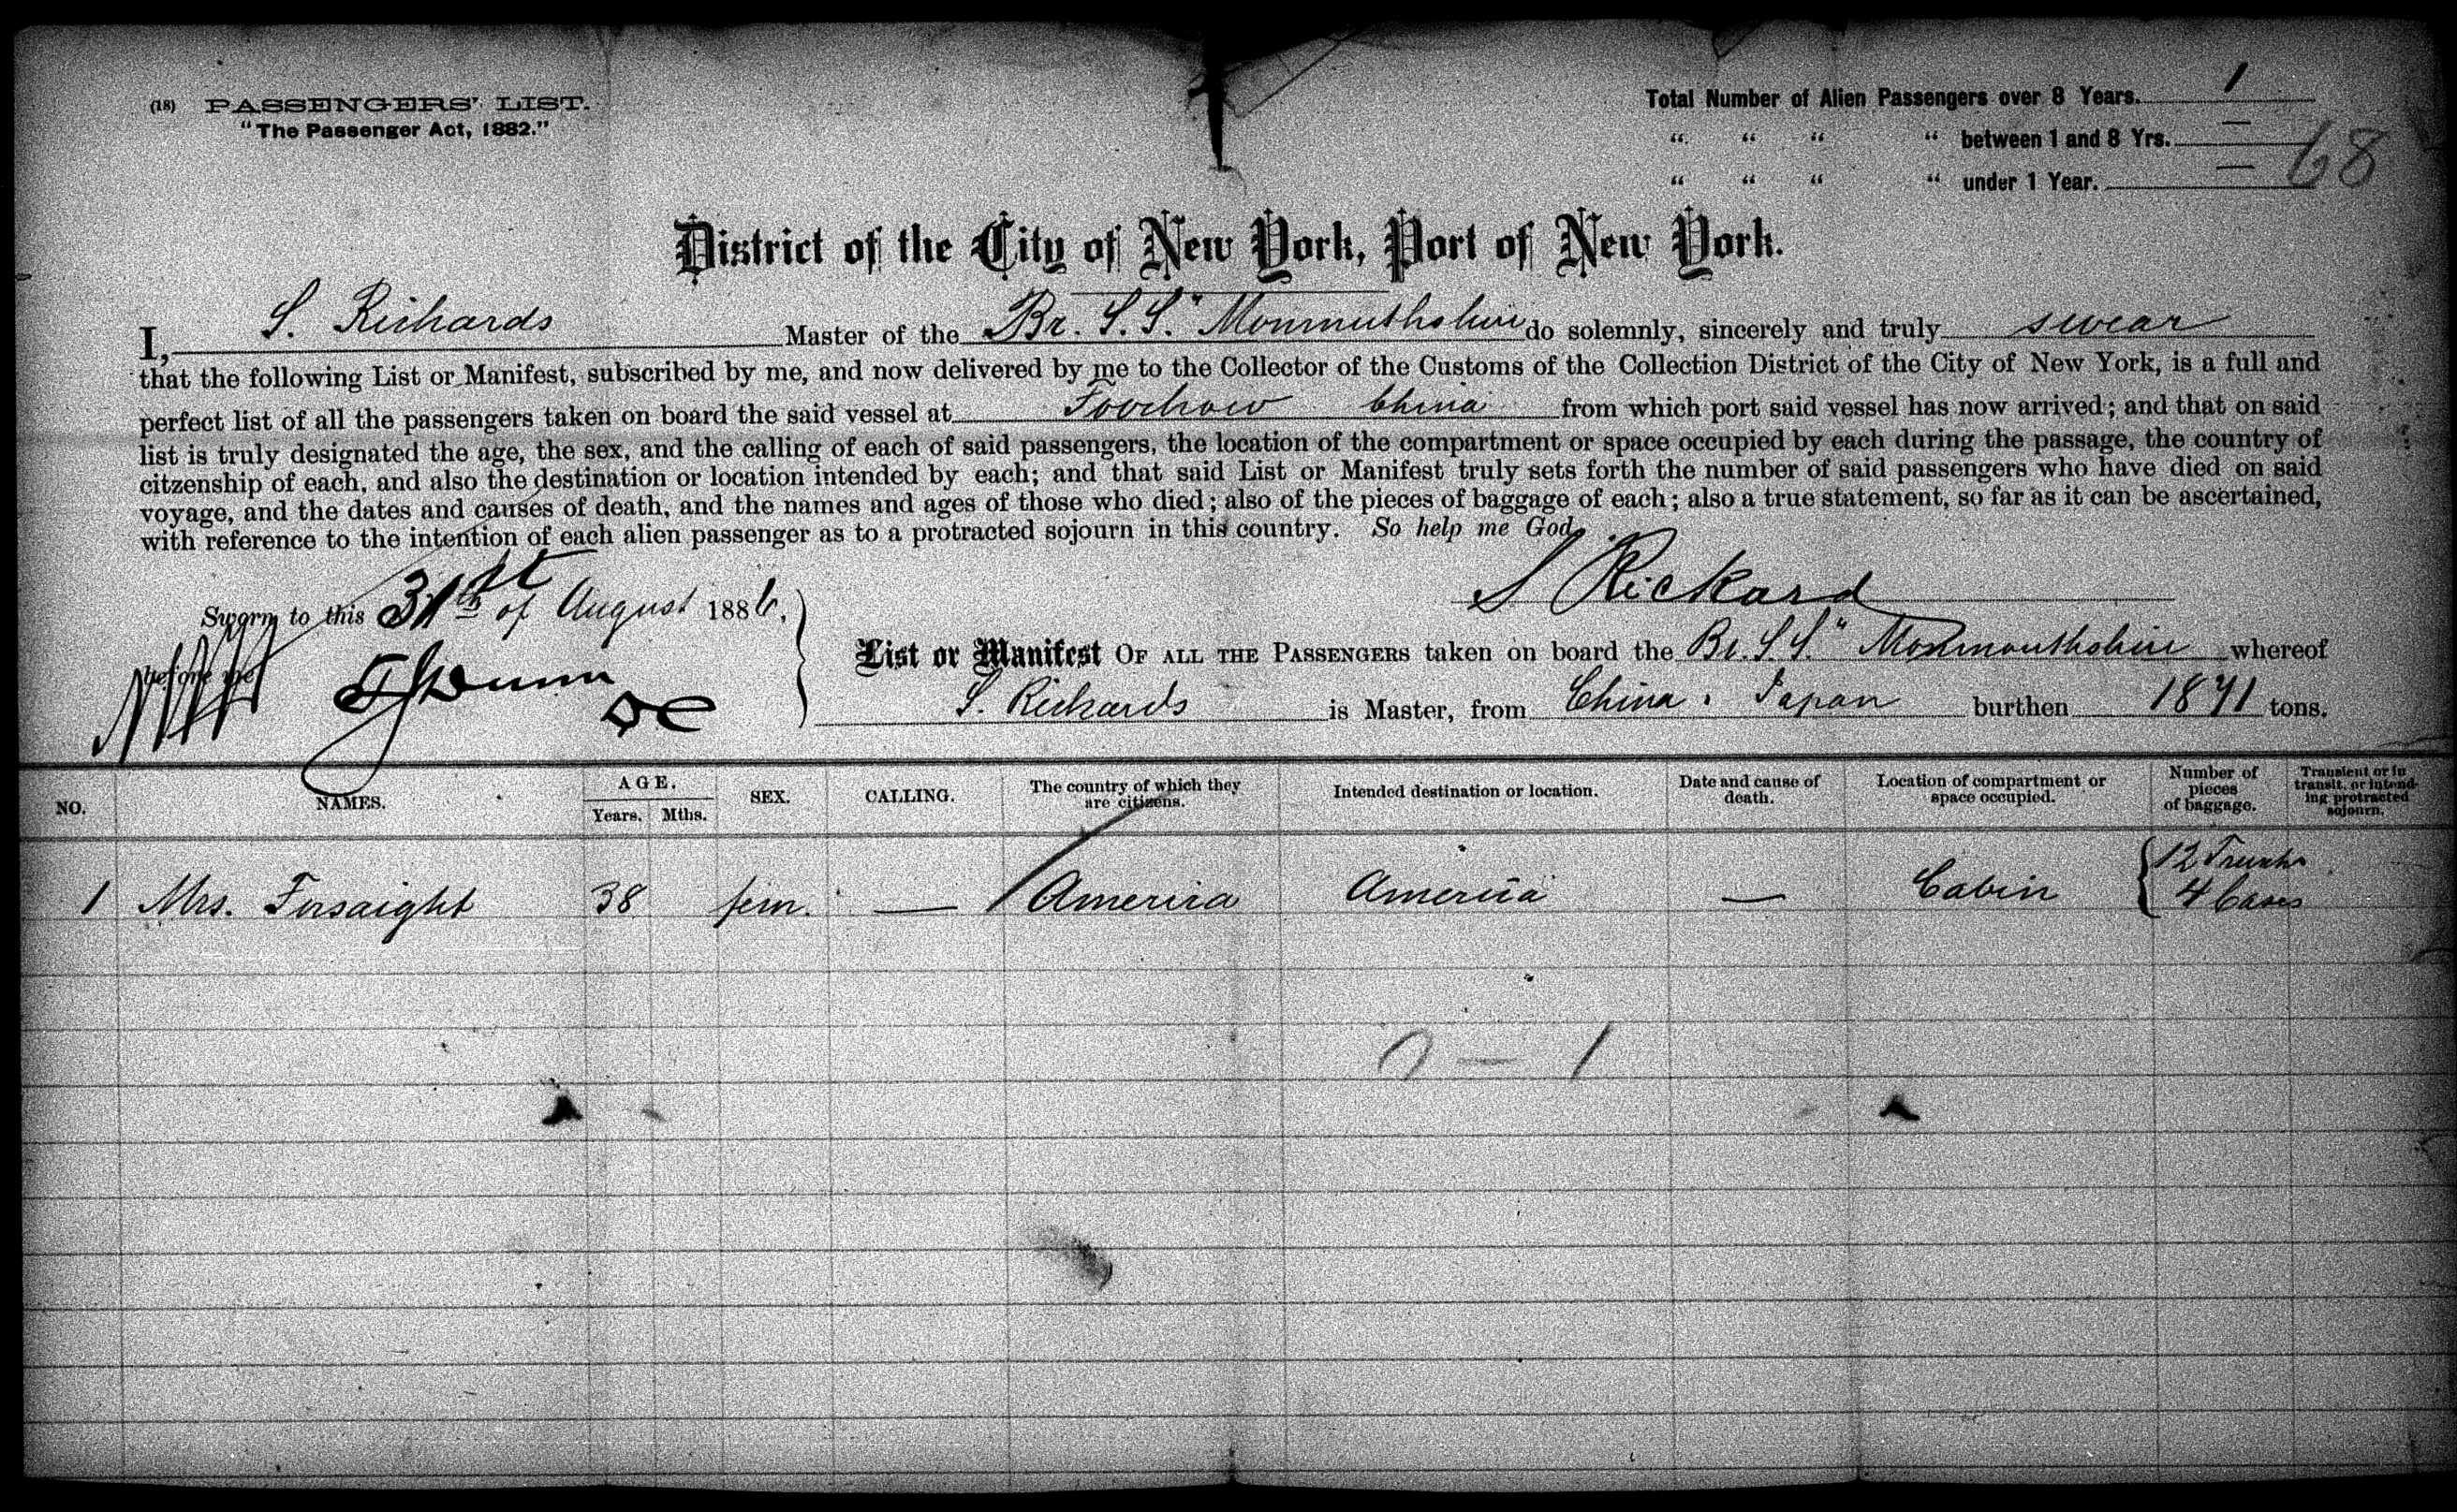 (18) PASSENGERS' LIST.
"The Passenger Act, 1882."
Total Number of Alien Passengers over 8 Years. 1
" " " " between 1 and 8 Yrs. —
" " " " under 1 Year. —
68
District of the City of New York, Port of New York.
I, S. Richards Master of the Br. S.S. "Monmuthshire do solemnly, sincerely and truly swear
that the following List or Manifest, subscribed by me, and now delivered by me to the Collector of the Customs of the Collection District of the City of New York, is a full and
perfect list of all the passengers taken on board the said vessel at Foochow China from which port said vessel has now arrived; and that on said
list is truly designated the age, the sex, and the calling of each of said passengers, the location of the compartment or space occupied by each during the passage, the country of
citzenship of each, and also the destination or location intended by each; and that said List or Manifest truly sets forth the number of said passengers who have died on said
voyage, and the dates and causes of death, and the names and ages of those who died; also of the pieces of baggage of each; also a true statement, so far as it can be ascertained,
with reference to the intention of each alien passenger as to a protracted sojourn in this country. So help me God.
S Rickard
Sworn to this 31st of August 1886,
before me
List or Manifest OF ALL THE PASSENGERS taken on board the Br. S.S. "Monmouthshire whereof
S. Richards is Master, from China. Japan burthen 1871 tons.
NO. NAMES. AGE. Years. Mths. SEX. CALLING. The country of which they are citizens. Intended destination or location. Date and cause of death. Location of compartment or space occupied. Number of pieces of baggage. Transient or in transit, or intending protracted sojourn.
1 Mrs. Forsaight 38 fem. — America America — Cabin { 12 Trunks
4 Cases
0 — 1